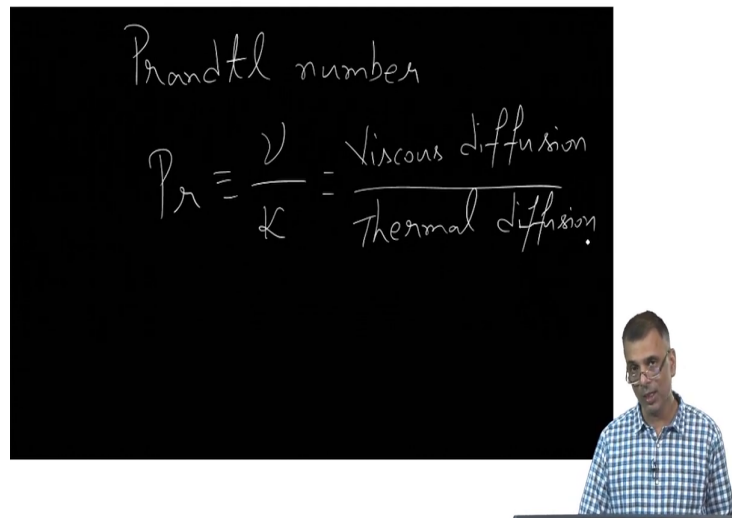 Prandtl number
Pr ≡ ν/κ ≡ Viscous diffusion / Thermal diffusion